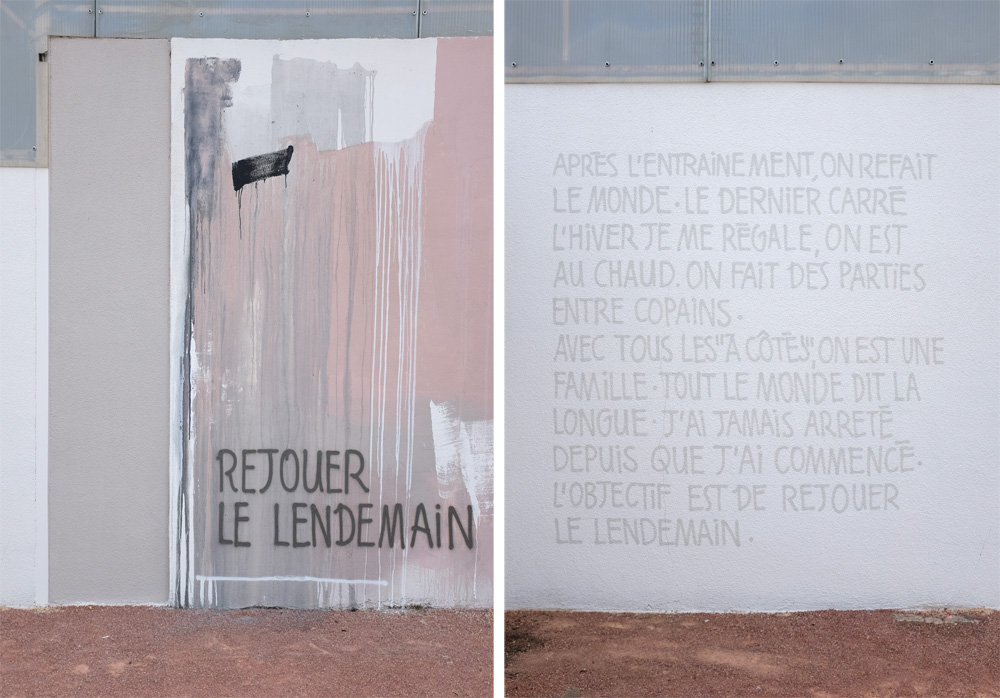 REJOUER
LE LENDEMAiN
APRĒS L'ENTRAiNEMENT, ON REFAIT
LE MONDE. LE DERNIER CARRĒ
L'HiVER JE ME RĒGALE, ON EST
AU CHAUD. ON FAIT DES PARTiES
ENTRE COPAiNS.
AVEC TOUS LES "Ā CÔTĒS", ON EST UNE
FAMiLLE. TOUT LE MONDE DIT LA
LONGUE. J'AI JAMAiS ARRETĒ
DEPUiS QUE J'Ai COMMENCĒ.
L'OBJECTiF EST DE REJOUER
LE LENDEMAiN.